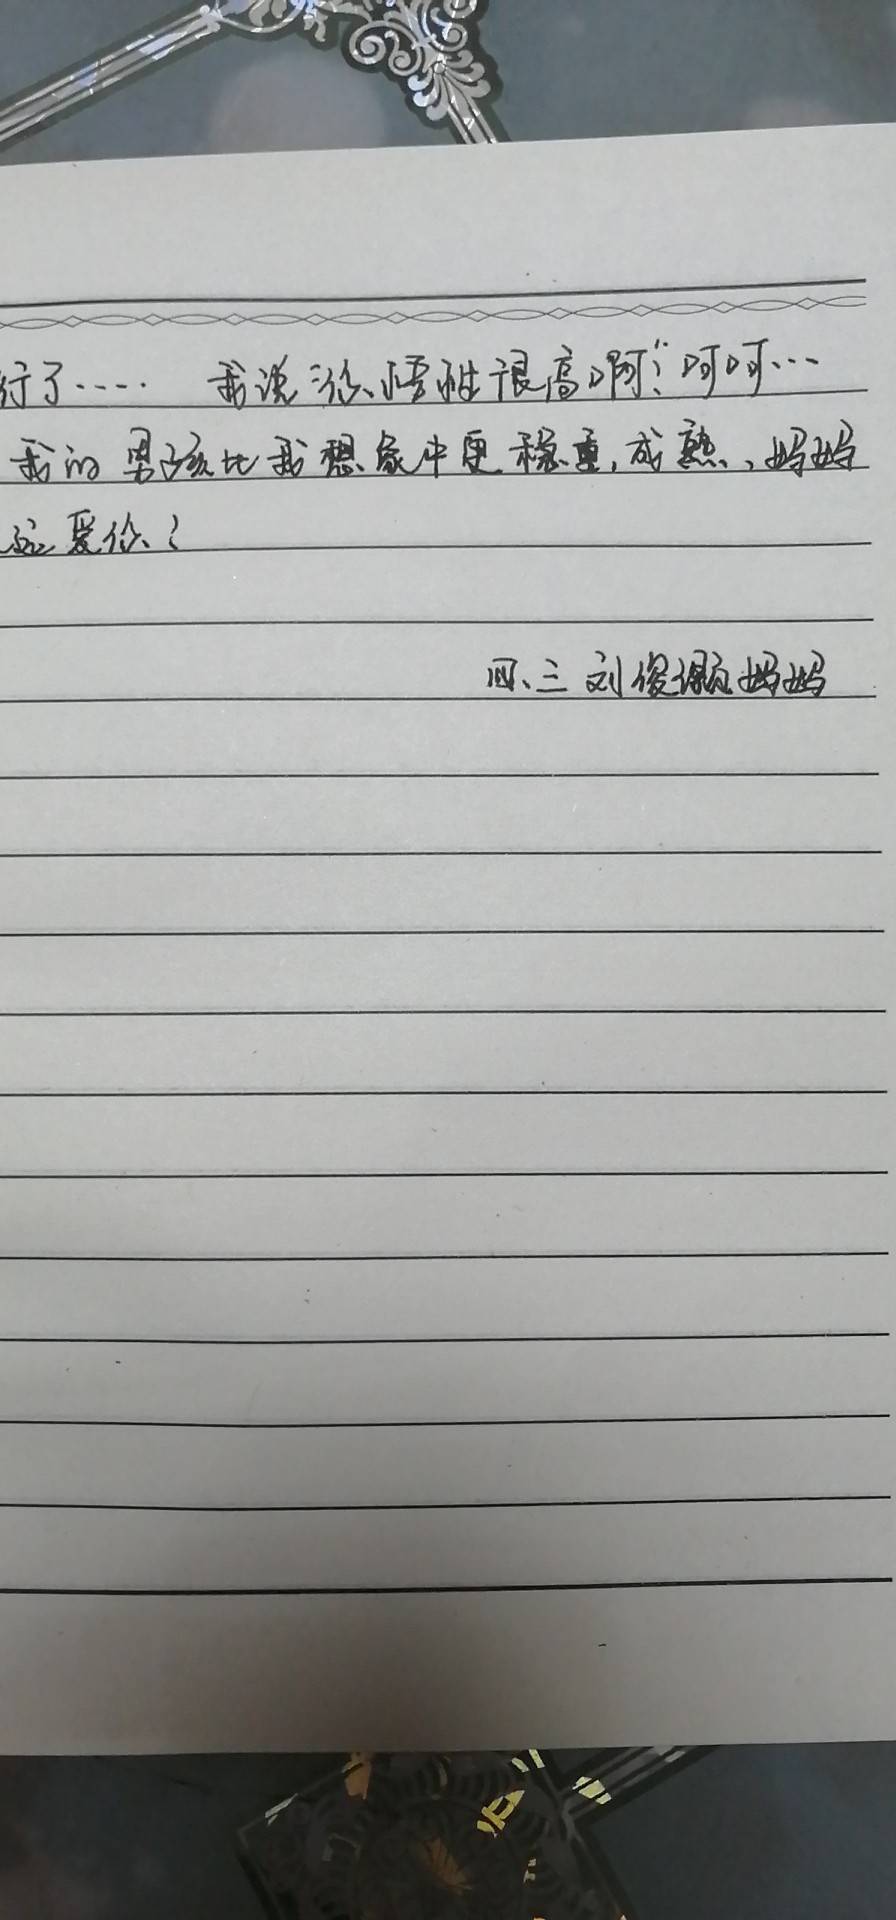 行了…… 我说:"你悟性很高啊!"呵呵…
我的男孩比我想象中更稳重,成熟,妈妈
爱你!
四、三 刘俊灏妈妈